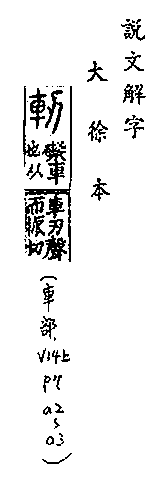 說文解字
大徐本
軔 礙車
也从
車刃聲
而振切
(車部, V14上 P7 a2~a3)